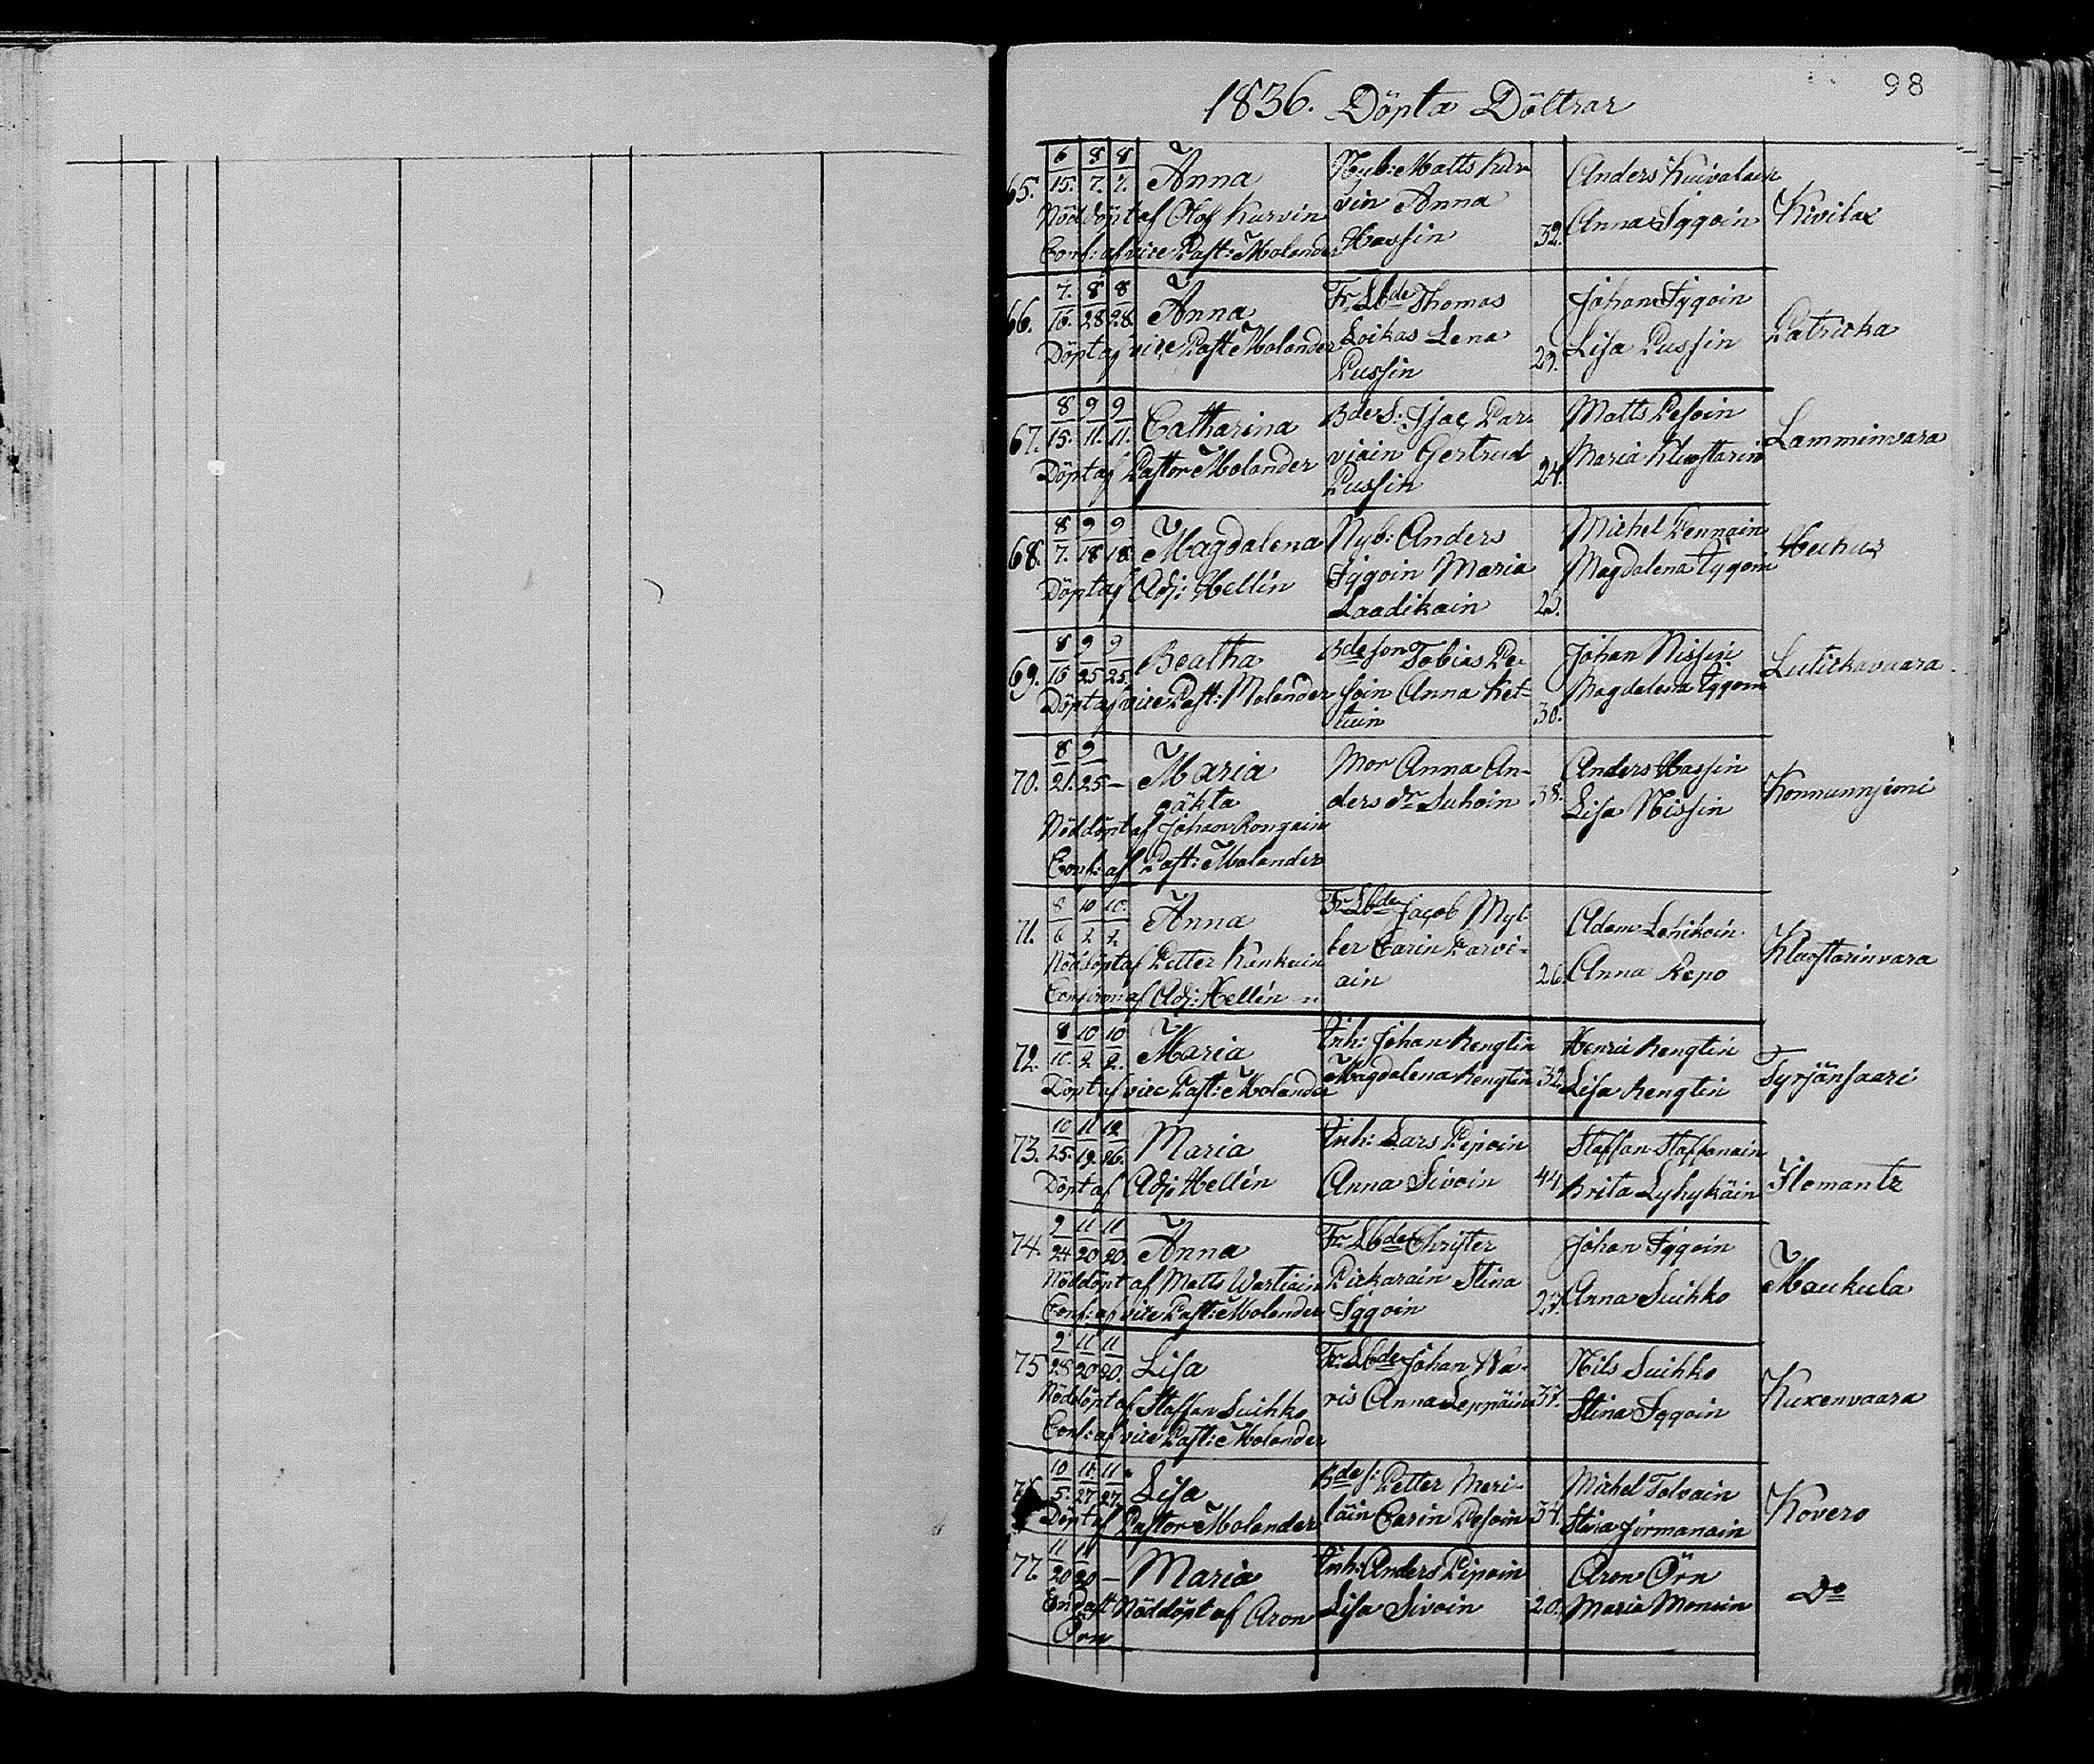 98
1836. Döpta Döttrar
65. 6/15. 8/7. 8/7. Anna
Nöddöpt af Olof Kurvin
Conf: af vice Past: Molander
Nyb: Matts Kur-
vin Anna
Hassin 32.
Anders Kuivalain
Anna Iggoin
Kivilax
66. 7./16. 8/28 8/28. Anna
Döpt af vice Past Molander
Fr. Lbde Thomas
Loikas Lena
Pussin 29.
Johan Iggoin
Lisa Pussin
Patricka
67. 8/15. 9/11. 9/11. Catharina
Döpt af Pastor Molander
Bde S: Isac Par-
viain Gertrud
Pussin 24.
Matts Pesoin
Maria Kluostarin
Lamminvara
68. 8/7. 9/18 9/18. Magdalena
Döpt af Adj: Hellén
Nyb: Anders
Iggoin Maria
Laadikain 25.
Michel Pennain
Magdalena Iggoin
Huhus
69. 8/16 9/25 9/25. Beatha
Döpt af vice Past: Molander
Bde son Tobias Pe-
soin Anna Ket-
tuin 30.
Johan Nissin
Magdalena Iggoin
Lutickavaara
70. 8/21. 9/25 — Maria
oäkta
Nöddöpt af Johan Rongain
Conf: af Past: Molander
Mor Anna An-
ders dr Suhoin 38.
Anders Hassin
Lisa Nissin
Konnunnjemi
71. 8/6 10/2 10./2. Anna
Nöddöpt af Petter Kankain
Confirm: af Adj: Hellén
Fr. Lbde Jacob Myl-
ler Carin Parvi-
ain 26.
Adam Lonikoin
Anna Repo
Kluostarinvara
72. 8/10. 10/2 10/2. Maria
Döpt af vice Past: Molander
Inh: Johan Kengtin
Magdalena Kengtin 32.
Henric Kengtin
Lisa Kengtin
Tyrjänsaari
73. 10/25. 11/19. 12/26. Maria
Döpt af Adj: Hellén
Inh: Lars Piipoin
Anna Sivoin 44.
Staffan Staffanain
Brita Lyhykäin
Ilomantz
74. 9/24 11/20 11/20. Anna
Nöddöpt af Matts Wartiain
Conf: af vice Past: Molander
Fr. Lbde Christer
Pickarain Stina
Iggoin 27.
Johan Iggoin
Anna Suihko
Maukula
75 9/28 11/20 11/20. Lisa
Nöddöpt af Staffan Suihko
Conf: af vice Past: Molander
Fr. Lbde Johan Wa-
ris Anna Leppäin 37.
Nils Suihko
Stina Iggoin
Kuxenvaara
76 10/5. 11/27 11/27. Lisa
Döpt af Pastor Molander
Bde s: Petter Meri-
läin Carin Pesoin 34.
Michel Tolvain
Stina Jormanain
Kovero
77. 11/20 11/20 — Maria
Endast Nöddöpt af Aron
Örn
Inh: Anders Piipoin
Lisa Sivoin 20.
Aron Örn
Maria Monnin
Do